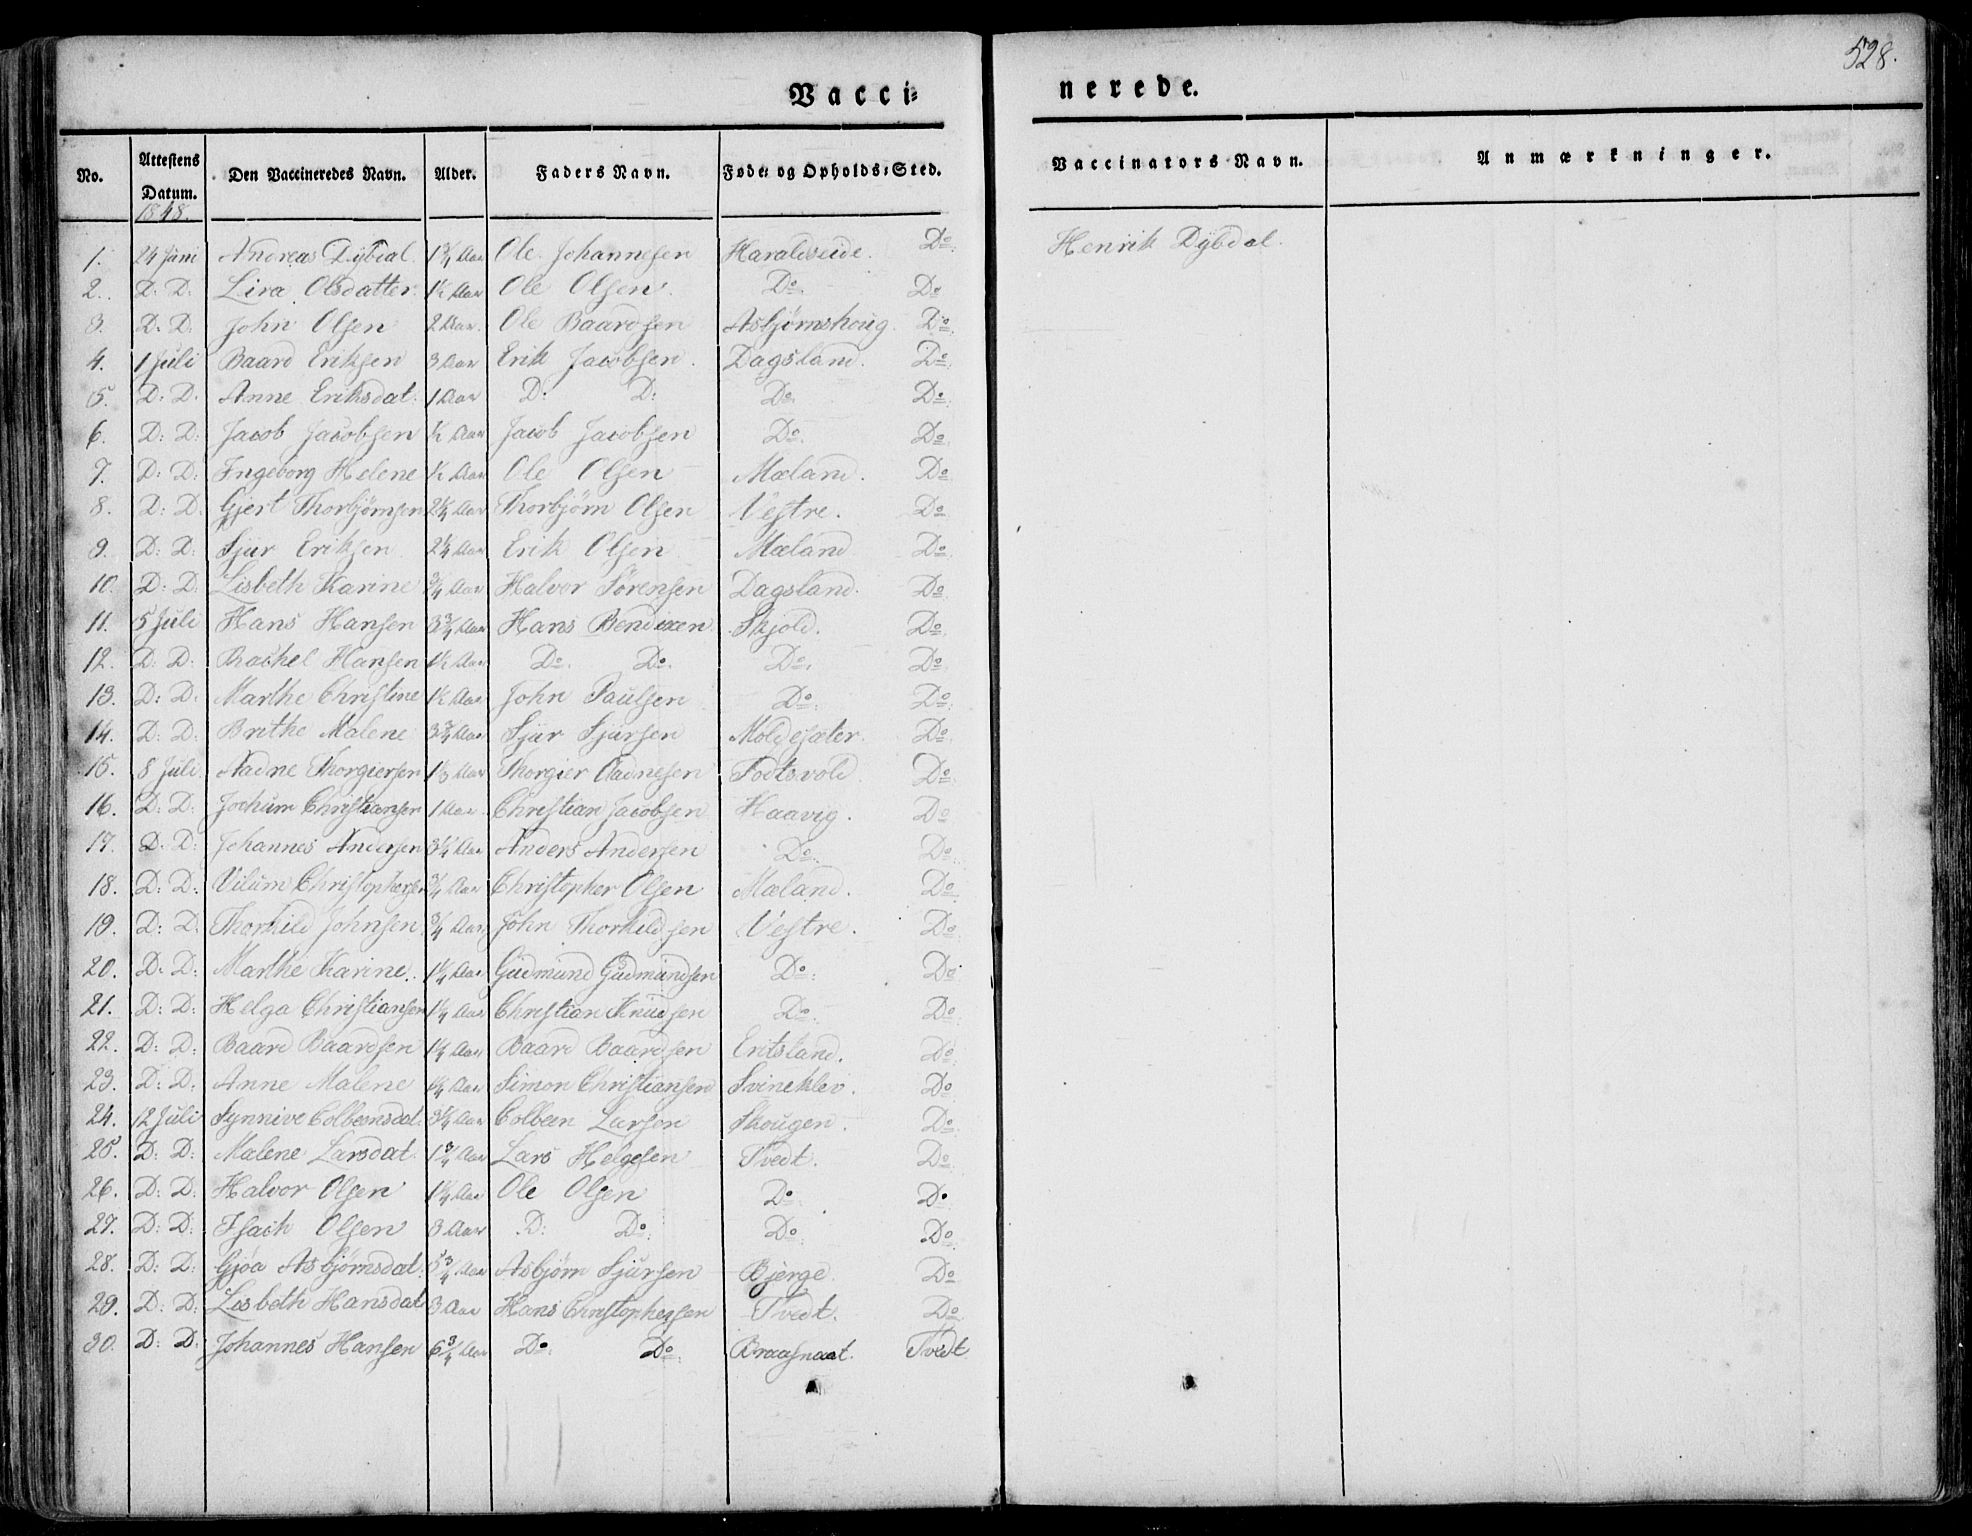 528.
Vacci= nerede.
No. Attestens Datum. Den Vaccineredes Navn. Alder. Faders Navn. Føde= og Opholds=Sted. Vaccinators Navn. Anmærkninger.
1848.
1. 24 Juni Andreas Dybdal. 1¾ Aar Ole Johannesen Haraldseide. Do. Henrik Dybdal.
2. D: D: Lira Olsdatter. 1½ Aar Ole Olsen. Do. Do
3. D: D: John Olsen 2 Aar. Ole Baardsen Asbjørnshoug. Do.
4. 1 Juli Baard Eriksen 3 Aar Erik Jacobsen. Dagsland. Do.
5. D: D: Anne Eriksdat. 1 Aar D: D: Do. Do.
6. D: D: Jacob Jacobsen ½ Aar Jacob Jacobsen Do. Do.
7. D: D: Ingeborg Helene ½ Aar Ole Olsen Mæland. Do
8. D: D: Gjert Thorbjørnsen 2¼ Aar Thorbjørn Olsen Vestre. Do
9. D: D: Sjur Eriksen 2¼ Aar Erik Olsen Mæland Do
10. D: D: Lisbeth Karine ¾ Aar Halvor Sørensen Dagsland. Do
11. 5 Juli Hans Hansen 3¾ Aar Hans Bendixen Skjold. Do.
12. D: D: Rachel Hansen 1½ Aar Do. Do. Do. Do.
13. D: D: Marthe Christine 1½ Aar John Paulsen Do. Do.
14. D: D: Brithe Malene 3¾ Aar Sjur Sjursen Moldesæter. Do.
15. 8 Juli Aadne Thorgiersen 1⅓ Aar Thorgier Aadnesen Fodtsvold. Do.
16. D: D: Jochum Christiansen 1 Aar Christian Jacobsen Haavig. Do
17. D: D: Johannes Andersen 3¼ Aar Anders Andersen Do. Do.
18. D: D: Vilum Christophersen ¾ Aar Christopher Olsen Mæland. Do.
19. D: D: Thorkild Johnsen ¾ Aar John Thorkildsen Vestre. Do.
20. D: D: Marthe Karine. 1¼ Aar Gudmund Gudmundsen Do: Do
21. D: D: Helga Christiansen 1¼ Aar Christian Knudsen Do. Do.
22. D: D: Baard Baardsen 1¼ Aar Baard Baardsen Eritsland. Do.
23. D: D: Anne Malene 1¼ Aar Simon Christiansen Svineklev. Do.
24. 12 Juli Synnive Colbeensdat. 3¼ Aar Colbeen Larsen Skougen. Do.
25. D: D: Malene Larsdat. 1¾ Aar Lars Helgesen Tvedt. Do.
26. D: D: Halvor Olsen 1¼ Aar Ole Olsen Do. Do
27. D: D: Isach Olsen 3 Aar D: Do. Do. Do.
28. D: D: Gjøa Asbjørnsdat. 5¾ Aar Asbjørn Sjursen Bjerge. Do
29. D: D: Lisbeth Hansdat 3 Aar Hans Christophersen Tvedt. Do
30. D: D: Johannes Hansen 6¾ Aar Do. Do. Braasnaat. Tvedt